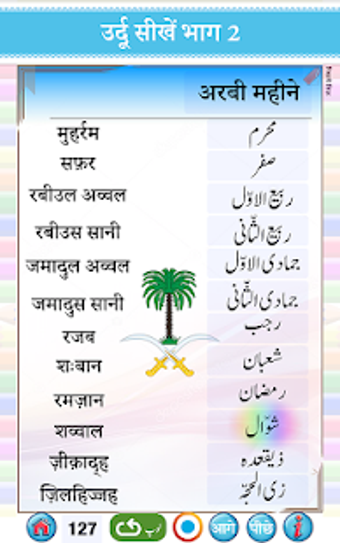 उर्दू सीखें भाग 2
अरबी महीने
मुहर्रम محرم
सफ़र صفر
रबीउल अव्वल ربیع الاوّل
रबीउस सानी ربیع الثّانی
जमादुल अव्वल جمادی الاوّل
जमादुस सानी جمادی الثّانی
रजब رجب
शःबान شعبان
रमज़ान رمضان
शव्वाल شوّال
ज़ीक़ाद्ह ذیقعدہ
ज़िलहिज्जह ذی الحجّہ
127 आगे पीछे i